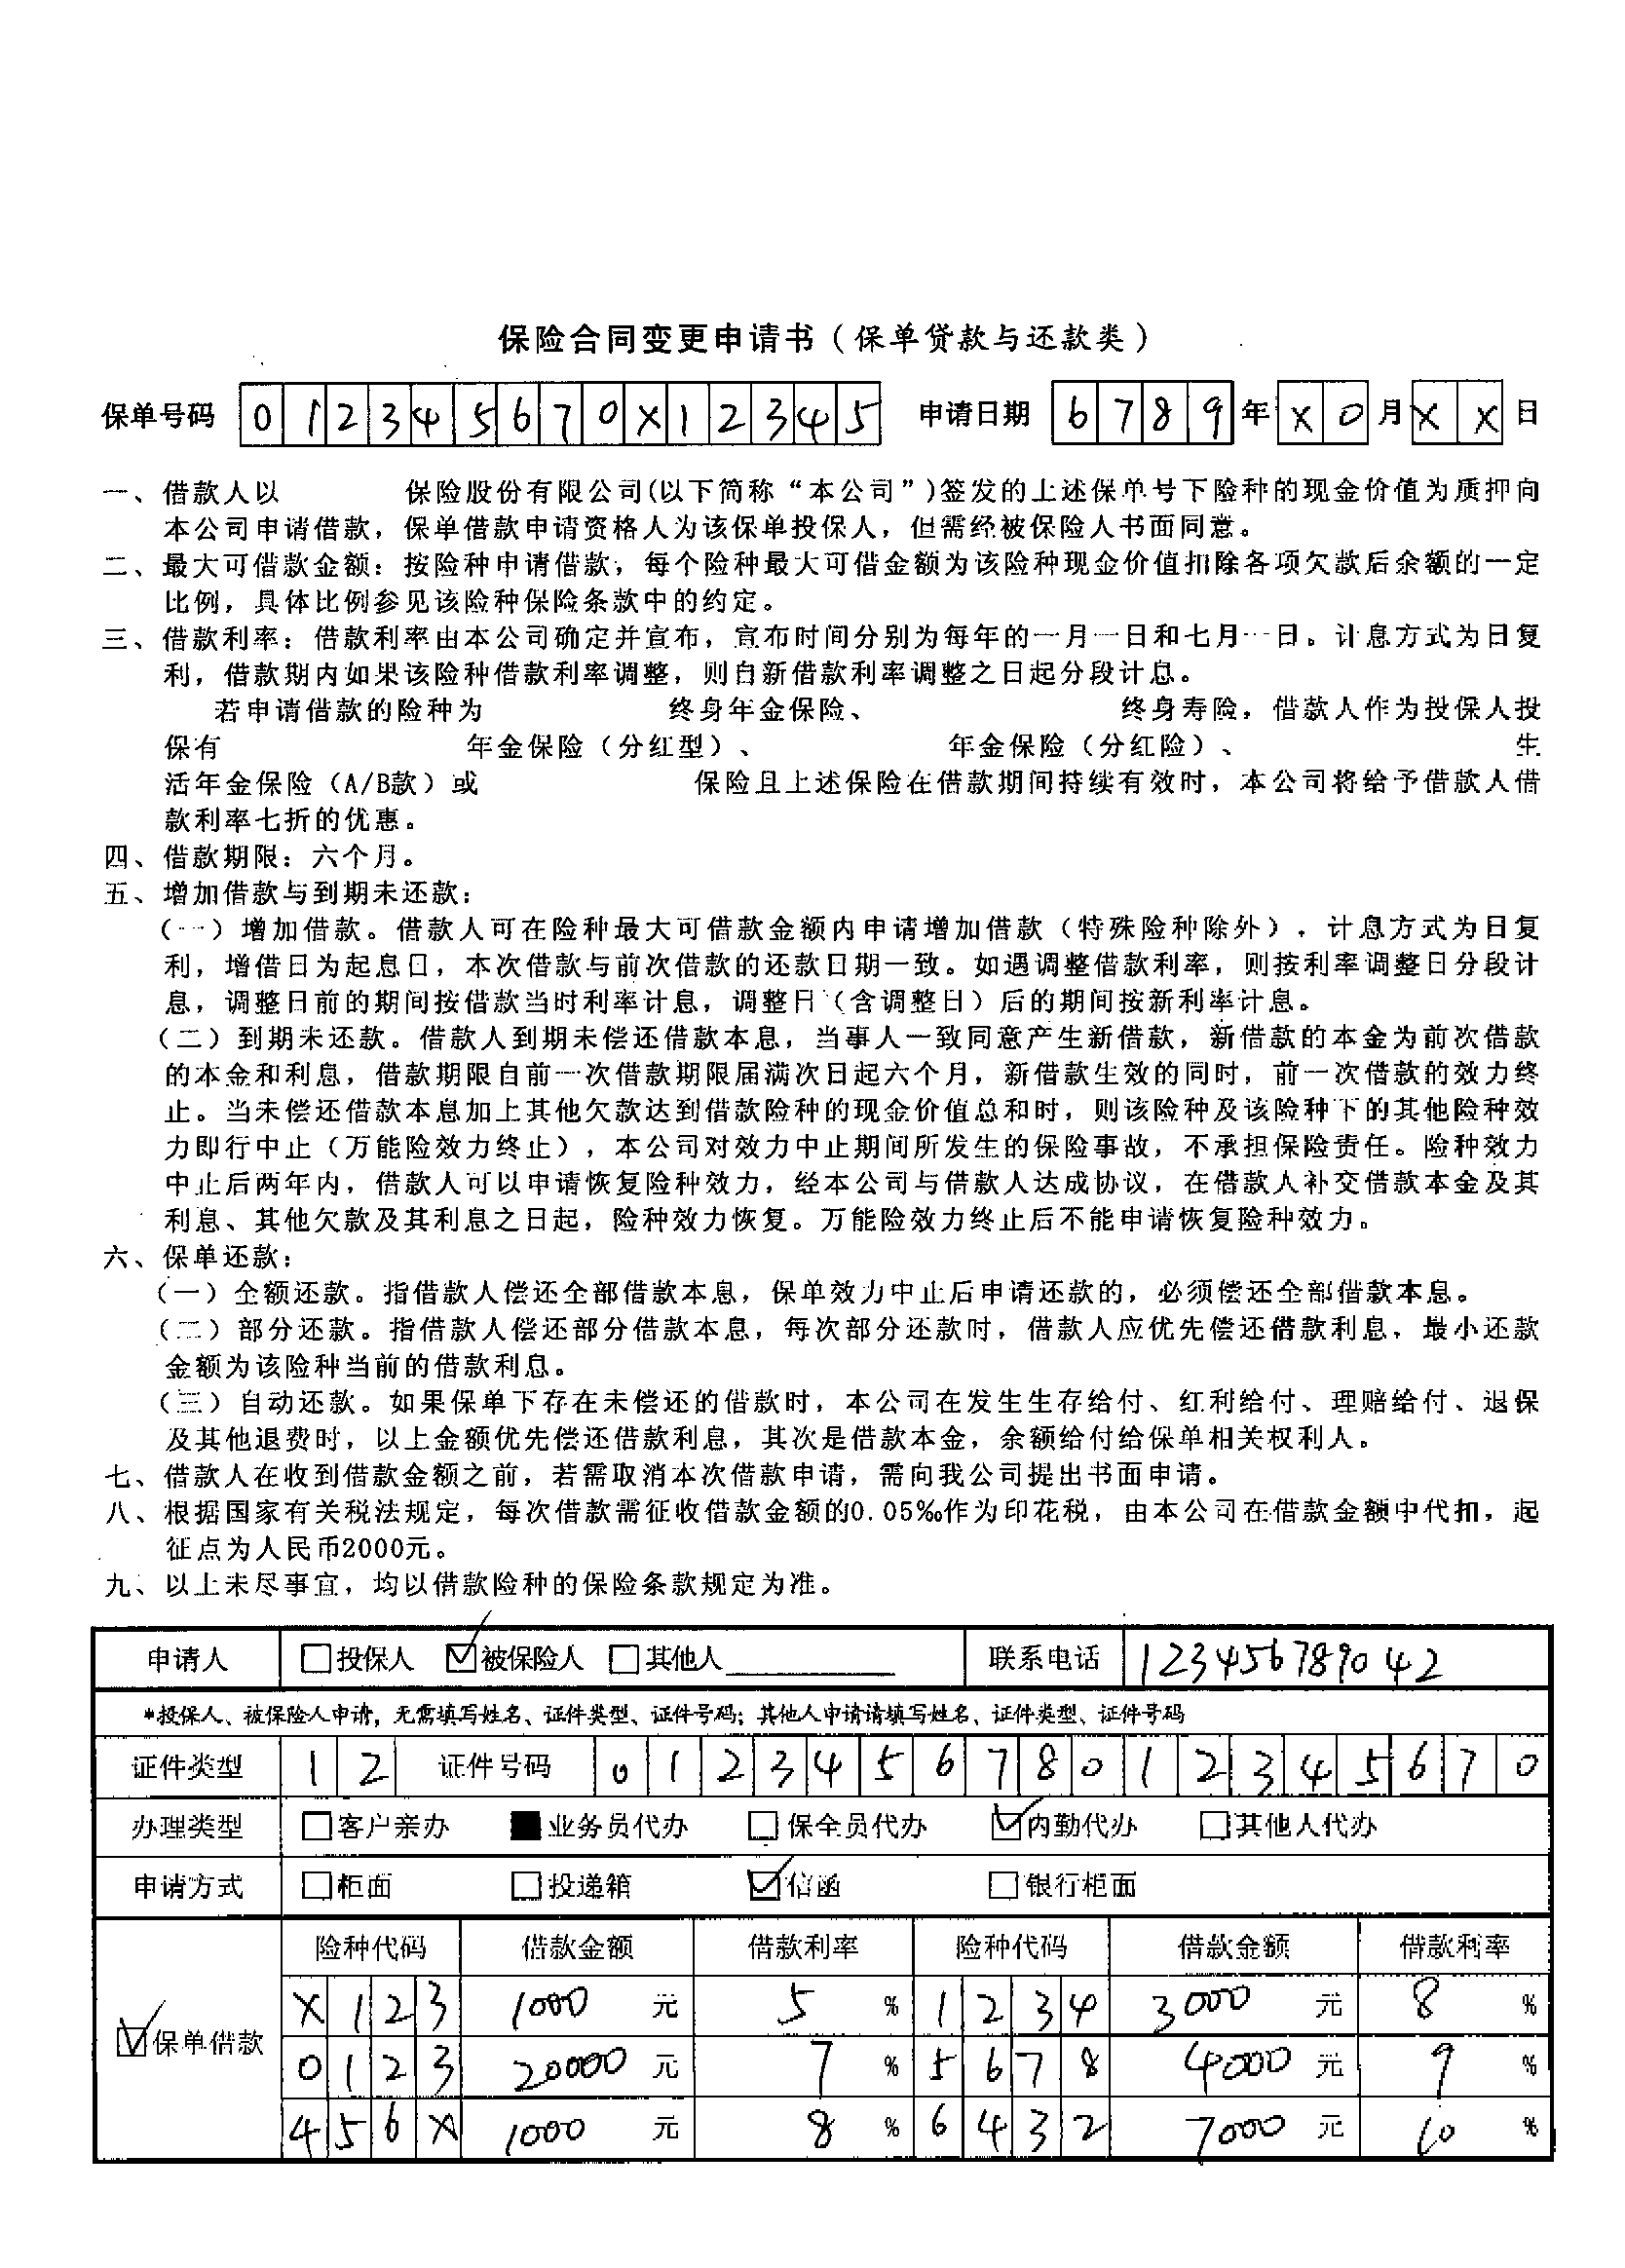 保险合同变更申请书（保单贷款与还款类）
保单号码 0 1 2 3 4 5 6 7 0 X 1 2 3 4 5 申请日期 6 7 8 9 年 X 0 月 X X 日
一、借款人以 保险股份有限公司(以下简称“本公司”)签发的上述保单号下险种的现金价值为质押向
本公司申请借款，保单借款申请资格人为该保单投保人，但需经被保险人书面同意。
二、最大可借款金额：按险种申请借款，每个险种最大可借金额为该险种现金价值扣除各项欠款后余额的一定
比例，具体比例参见该险种保险条款中的约定。
三、借款利率：借款利率由本公司确定并宣布，宣布时间分别为每年的一月一日和七月一日。计息方式为日复
利，借款期内如果该险种借款利率调整，则自新借款利率调整之日起分段计息。
若申请借款的险种为 终身年金保险、 终身寿险，借款人作为投保人投
保有 年金保险（分红型）、 年金保险（分红险）、 生
活年金保险（A/B款）或 保险且上述保险在借款期间持续有效时，本公司将给予借款人借
款利率七折的优惠。
四、借款期限：六个月。
五、增加借款与到期未还款：
（一）增加借款。借款人可在险种最大可借款金额内申请增加借款（特殊险种除外），计息方式为日复
利，增借日为起息日，本次借款与前次借款的还款日期一致。如遇调整借款利率，则按利率调整日分段计
息，调整日前的期间按借款当时利率计息，调整日（含调整日）后的期间按新利率计息。
（二）到期未还款。借款人到期未偿还借款本息，当事人一致同意产生新借款，新借款的本金为前次借款
的本金和利息，借款期限自前一次借款期限届满次日起六个月，新借款生效的同时，前一次借款的效力终
止。当未偿还借款本息加上其他欠款达到借款险种的现金价值总和时，则该险种及该险种下的其他险种效
力即行中止（万能险效力终止），本公司对效力中止期间所发生的保险事故，不承担保险责任。险种效力
中止后两年内，借款人可以申请恢复险种效力，经本公司与借款人达成协议，在借款人补交借款本金及其
利息、其他欠款及其利息之日起，险种效力恢复。万能险效力终止后不能申请恢复险种效力。
六、保单还款：
（一）全额还款。指借款人偿还全部借款本息，保单效力中止后申请还款的，必须偿还全部借款本息。
（二）部分还款。指借款人偿还部分借款本息，每次部分还款时，借款人应优先偿还借款利息，最小还款
金额为该险种当前的借款利息。
（三）自动还款。如果保单下存在未偿还的借款时，本公司在发生生存给付、红利给付、理赔给付、退保
及其他退费时，以上金额优先偿还借款利息，其次是借款本金，余额给付给保单相关权利人。
七、借款人在收到借款金额之前，若需取消本次借款申请，需向我公司提出书面申请。
八、根据国家有关税法规定，每次借款需征收借款金额的0.05‰作为印花税，由本公司在借款金额中代扣，起
征点为人民币2000元。
九、以上未尽事宜，均以借款险种的保险条款规定为准。
申请人 □投保人 ☑被保险人 □其他人 联系电话 123456789042
*投保人、被保险人申请，无需填写姓名、证件类型、证件号码；其他人申请请填写姓名、证件类型、证件号码
证件类型 1 2 证件号码 0 1 2 3 4 5 6 7 8 0 1 2 3 4 5 6 7 0
办理类型 □客户亲办 ■业务员代办 □保全员代办 ☑内勤代办 □其他人代办
申请方式 □柜面 □投递箱 ☑信函 □银行柜面
险种代码 借款金额 借款利率 险种代码 借款金额 借款利率
X 1 2 3 1000 元 5 % 1 2 3 4 3000 元 8 %
☑保单借款 0 1 2 3 20000 元 7 % 5 6 7 8 4000 元 9 %
4 5 6 X 1000 元 8 % 6 4 3 2 7000 元 10 %